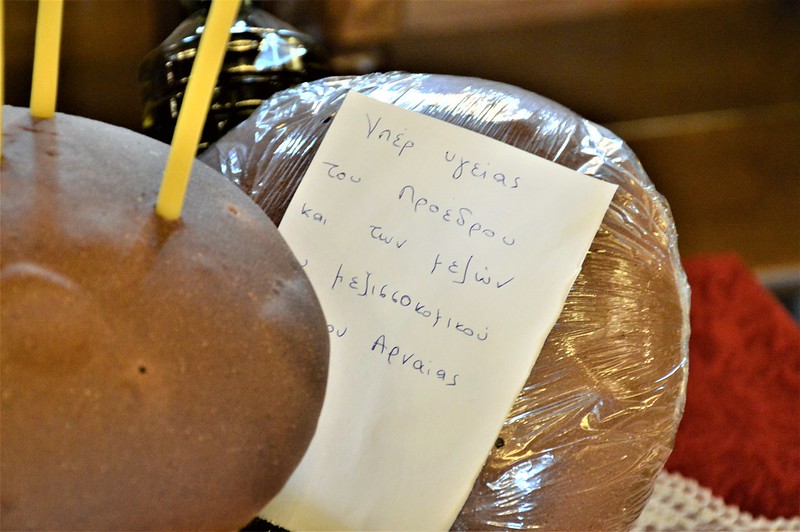 Υπέρ υγείας
του Προέδρου
και των μελών
υ μελισσοκομικού
ου Αρναίας